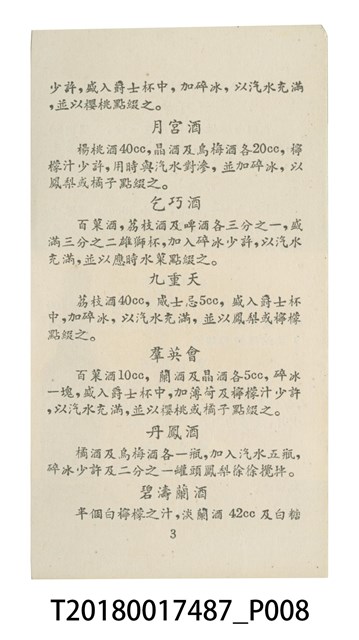 少許，盛入爵士杯中，加碎冰，以汽水充滿
，並以櫻桃點綴之。
月宮酒
楊桃酒40cc，晶酒及烏梅酒各20cc，檸
檬汁少許，用時與汽水對滲，並加碎冰，以
鳳梨或橘子點綴之。
乞巧酒
百菓酒，荔枝酒及啤酒各三分之一，盛
滿三分之二雄獅杯，加入碎冰少許，以汽水
充滿，並以應時水菓點綴之。
九重天
荔枝酒40cc，威士忌5cc，盛入爵士杯
中，加碎冰，以汽水充滿，並以鳳梨或檸檬
點綴之。
羣英會
百菓酒10cc，蘭酒及晶酒各5cc，碎冰
一塊，盛入爵士杯中，加薄荷及檸檬汁少許
，以汽水充滿，並以櫻桃或橘子點綴之。
丹鳳酒
橘酒及烏梅酒各一瓶，加入汽水五瓶，
碎冰少許及二分之一罐頭鳳梨徐徐攪拌。
碧濤蘭酒
半個白檸檬之汁，淡蘭酒 42cc 及白糖
3
T20180017487_P008